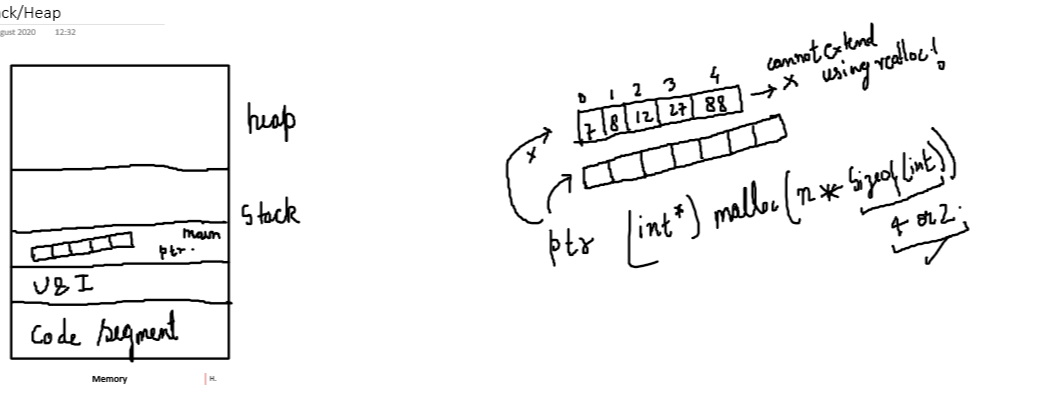 ck/Heap
gust 2020 12:32
heap
Stack
main
ptr.
U & I
Code segment
Memory
H.
0 1 2 3 4
7 8 12 27 88
→ x cannot extend
using realloc!
x
ptr (int*) malloc(n * sizeof(int))
4 or 2.